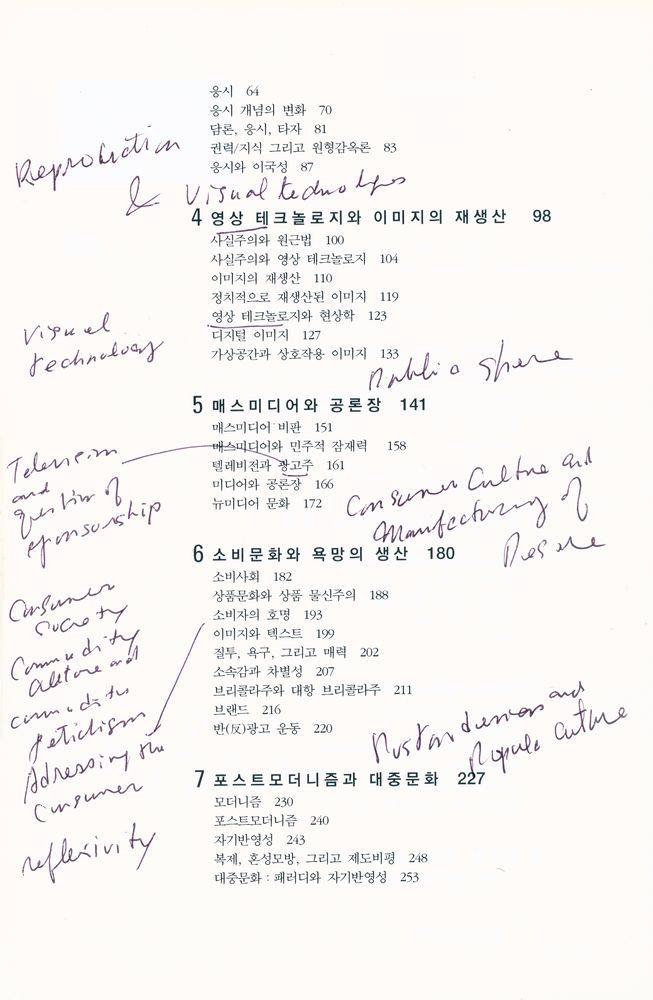 응시 64
응시 개념의 변화 70
담론, 응시, 타자 81
권력/지식 그리고 원형감옥론 83
응시와 이국성 87
Reproduction
& Visual technologies
4 영상 테크놀로지와 이미지의 재생산 98
사실주의와 원근법 100
사실주의와 영상 테크놀로지 104
이미지의 재생산 110
정치적으로 재생산된 이미지 119
영상 테크놀로지와 현상학 123
디지털 이미지 127
가상공간과 상호작용 이미지 133
Visual
technology
Public sphere
5 매스미디어와 공론장 141
매스미디어 비판 151
매스미디어와 민주적 잠재력 158
텔레비전과 광고주 161
미디어와 공론장 166
뉴미디어 문화 172
Television
and
question of
sponsorship
Consumer Culture and
Manufacturing of
Desire
6 소비문화와 욕망의 생산 180
소비사회 182
상품문화와 상품 물신주의 188
소비자의 호명 193
이미지와 텍스트 199
질투, 욕구, 그리고 매력 202
소속감과 차별성 207
브리콜라주와 대항 브리콜라주 211
브랜드 216
반(反)광고 운동 220
Consumer
Society
Commodity
Culture and
commodity
fetichism
Adressing the
Consumer
Postmodernism and
Popular Culture
7 포스트모더니즘과 대중문화 227
모더니즘 230
포스트모더니즘 240
자기반영성 243
복제, 혼성모방, 그리고 제도비평 248
대중문화 : 패러디와 자기반영성 253
reflexivity